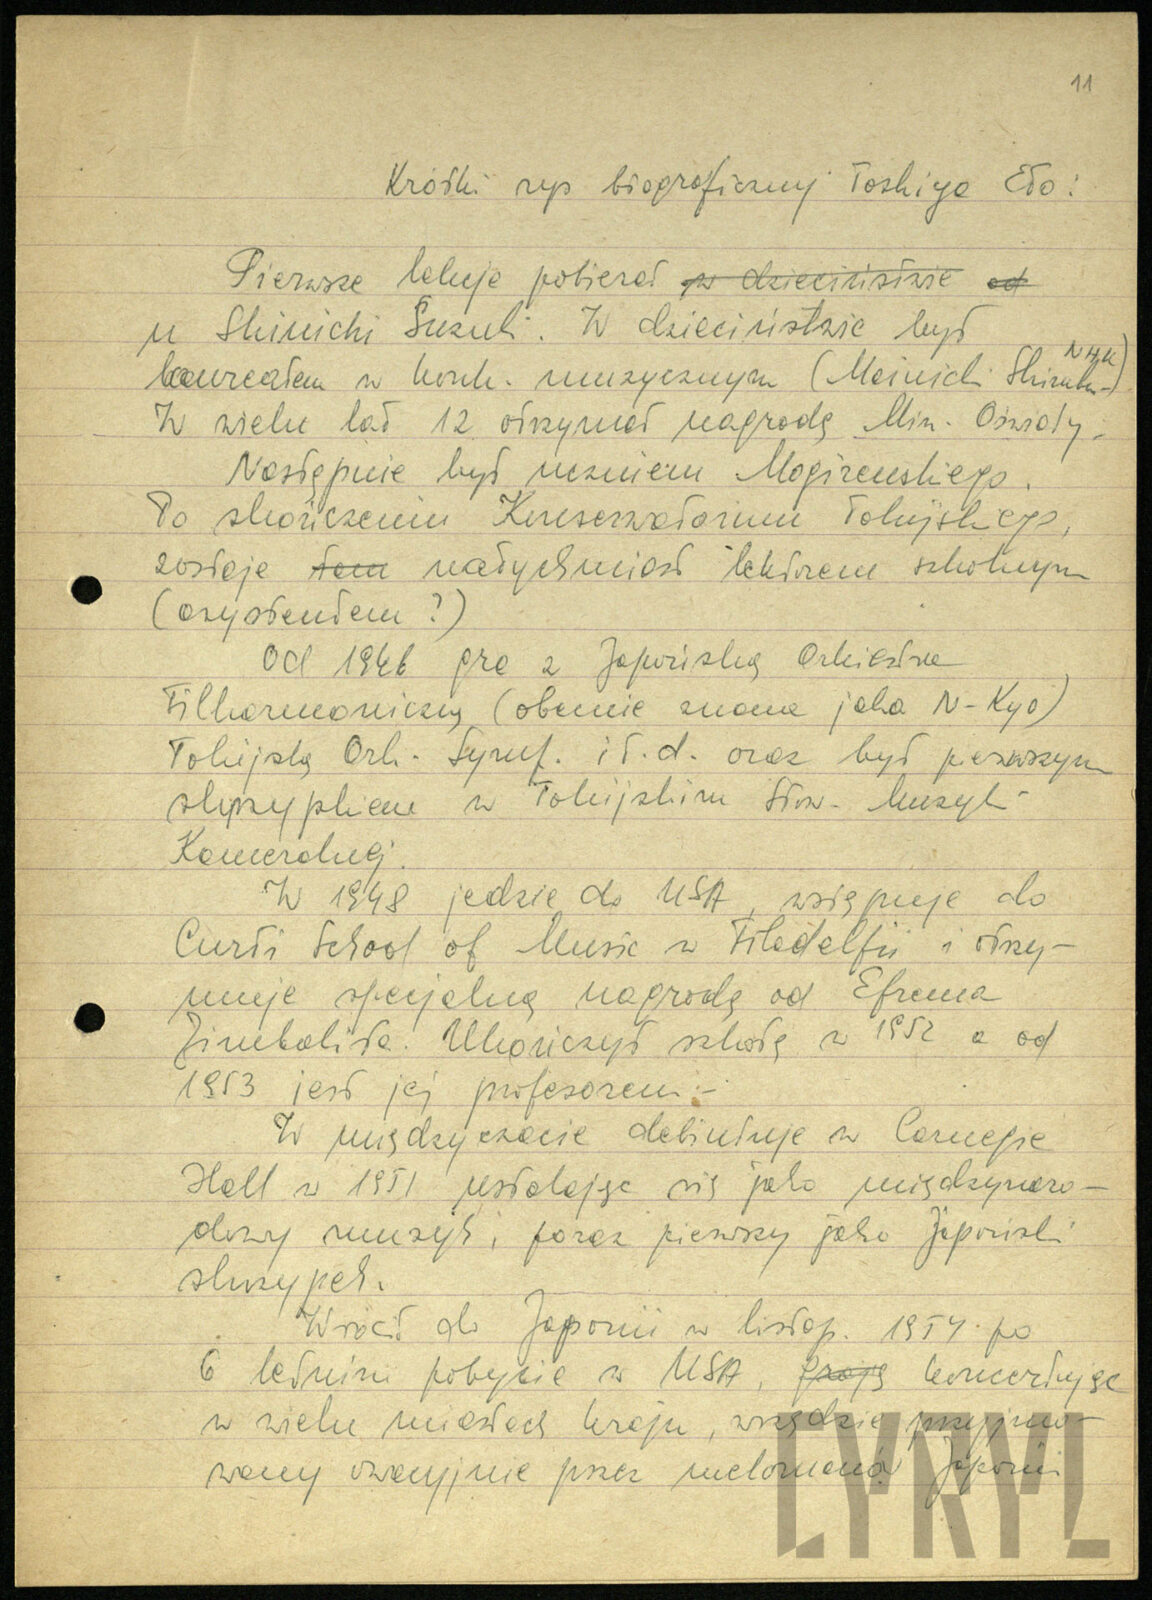 11
Krótki rys biograficzny Toshiya Eto:
Pierwsze lekcje pobierał w dzieciństwie od
u Shinichi Suzuki. W dzieciństwie był
laureatem w konk. muzycznym (Mainichi Shimbun - NHK)
W wieku lat 12 otrzymał nagrodę Min. Oświaty.
Następnie był uczniem Mogirewskiego.
Po skończeniu Konserwatorium Tokijskiego,
zostaje tam natychmiast lektorem szkolnym
(asystentem?)
Od 1946 gra z Japońską Orkiestrą
Filharmoniczną (obecnie znana jako N-Kyo)
Tokijską Ork. Symf. i t.d. oraz był pierwszym
skrzypkiem w Tokijskim Stow. Muzyki
Kameralnej.
W 1948 jedzie do USA, wstępuje do
Curti School of Music w Filadelfii i otrzy-
muje specjalną nagrodę od Efrema
Zimbalista. Ukończył szkołę w 1952 a od
1953 jest jej profesorem.-
W międzyczasie debiutuje w Carnegie
Hall w 1951 ustalając się jako międzynaro-
dowy muzyk, poraz pierwszy jako Japoński
skrzypek.
Wrócił do Japonii w listop. 1954 po
6 letnim pobycie w USA, grają koncertując
w wielu miastach kraju, wszędzie przyjmo-
wany owacyjnie przez melomanów Japonii
CYRYL